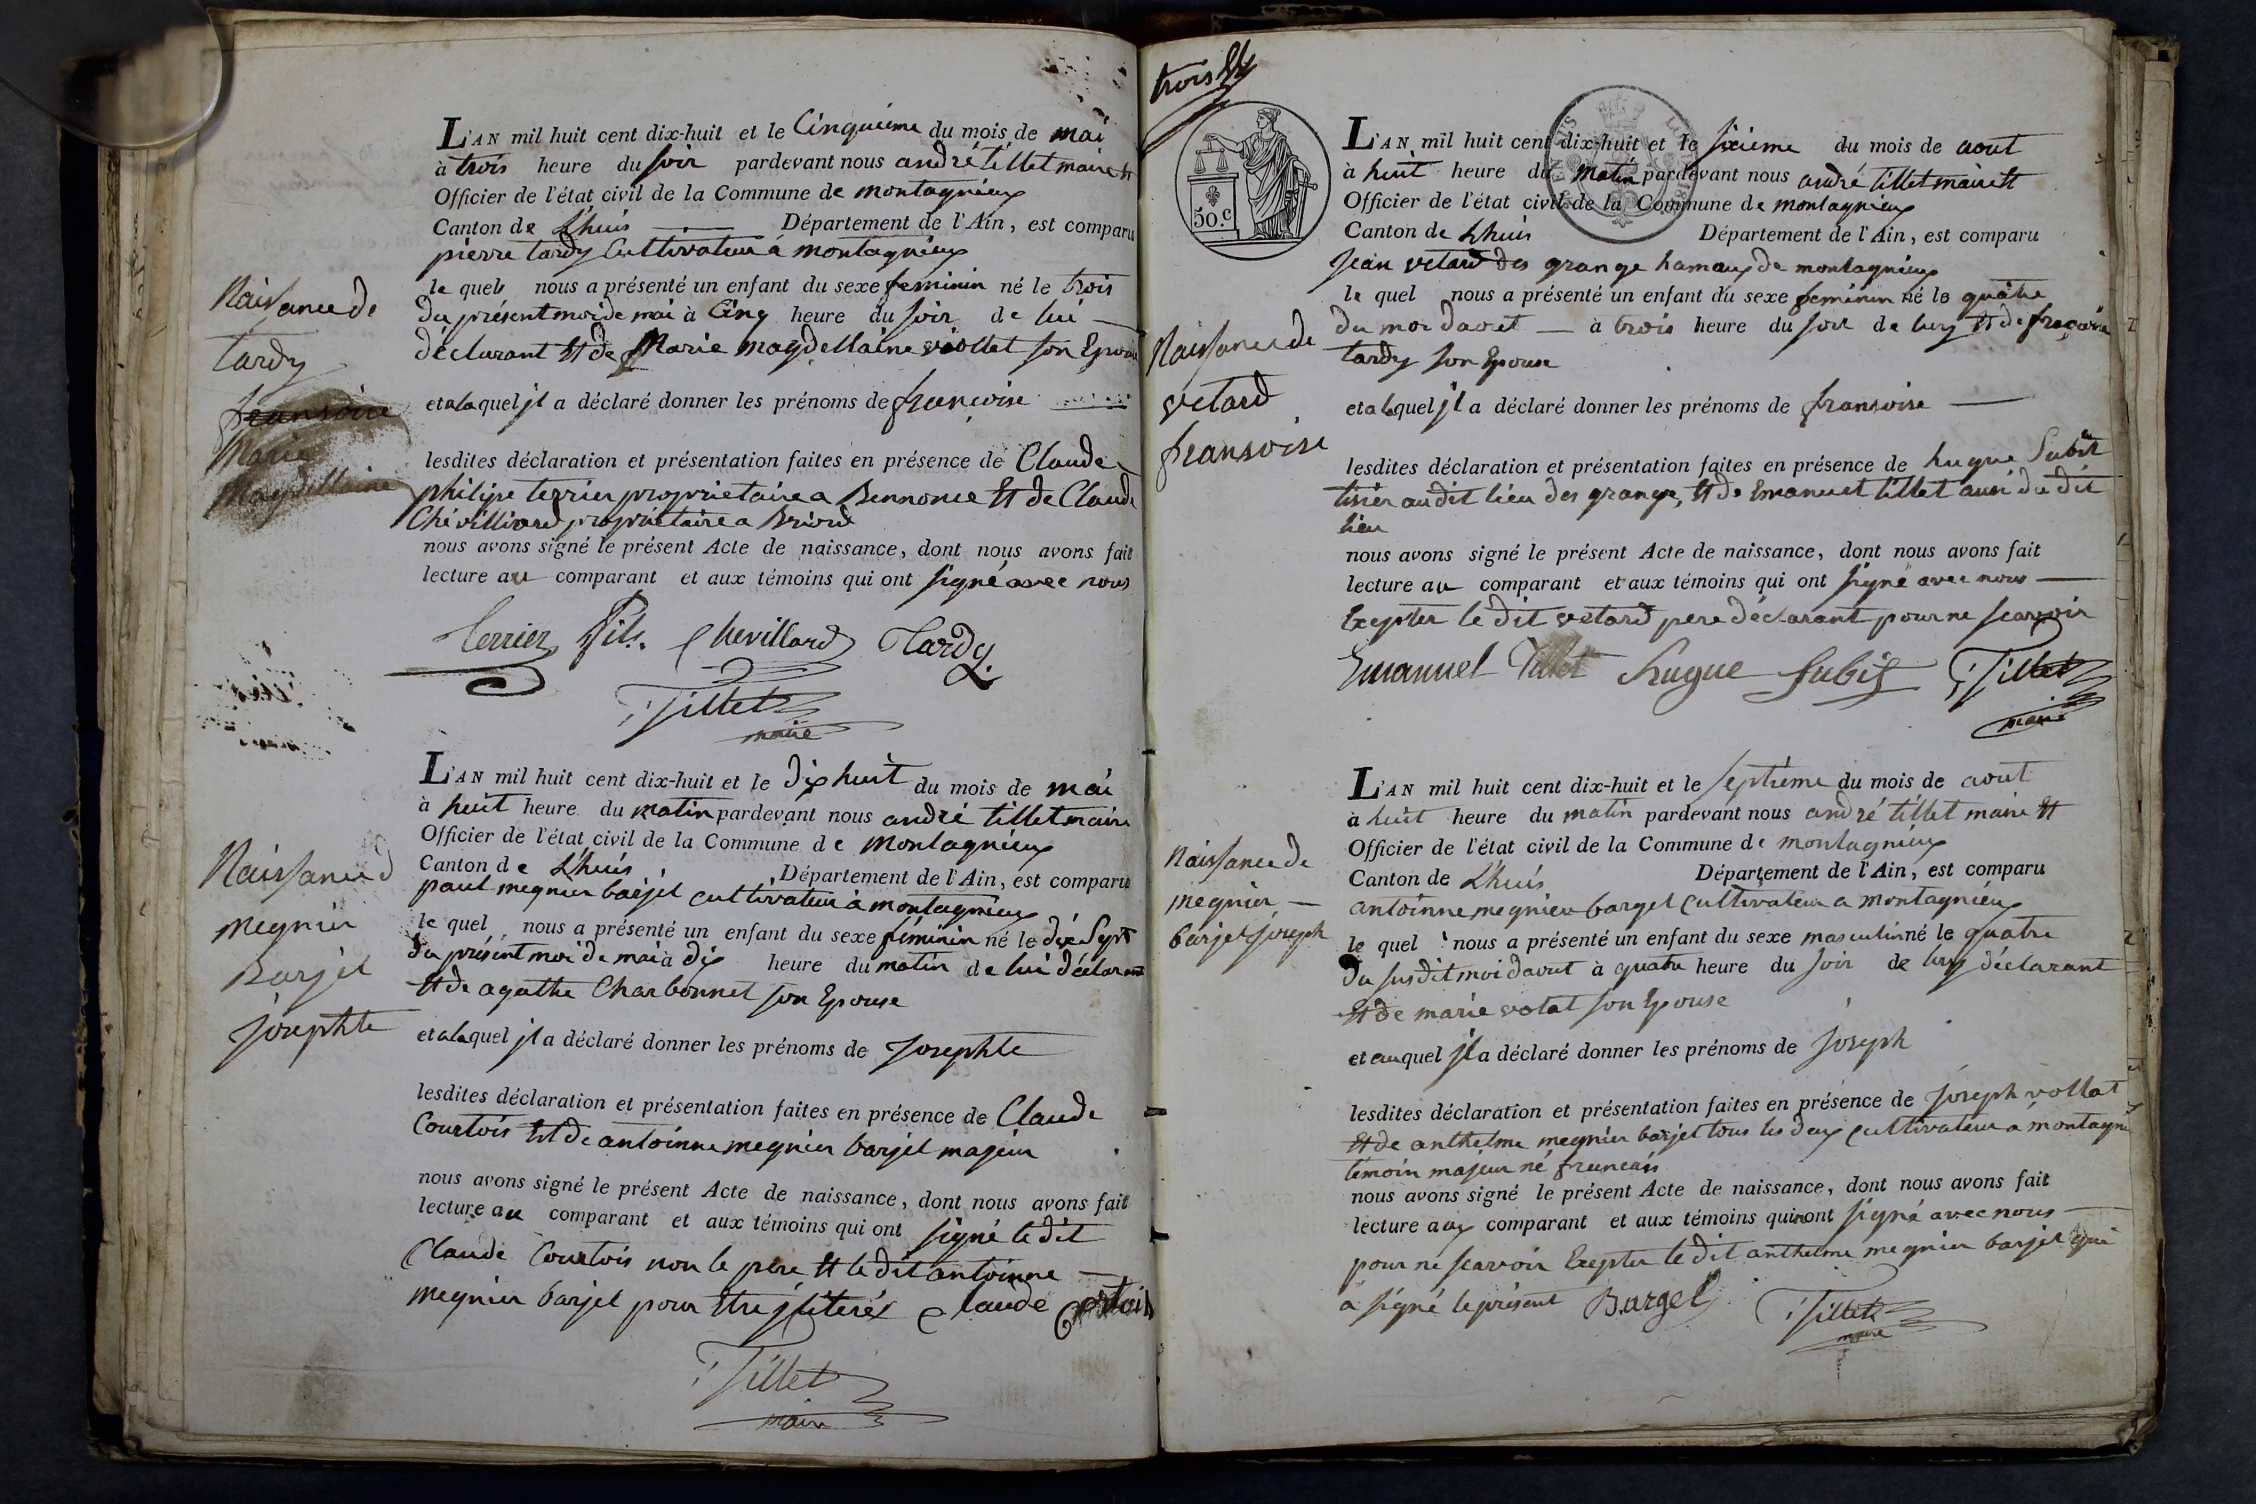 L'AN mil huit cent dix-huit et le Cinquième du mois de mai
à trois heure du soir pardevant nous andré tillet maire et
Officier de l'état civil de la Commune de montagnieux
Canton de Lhuis Département de l'Ain, est comparu
pierre tardy Cultivateur à montagnieux
le quel nous a présenté un enfant du sexe feminin né le trois
du présent moi de mai à Cinq heure du soir de lui
déclarant et de Marie magdellaine viollet son Epouse
et a laquel jl a déclaré donner les prénoms de françoise
lesdites déclaration et présentation faites en présence de Claude
philipe terrier proprietaire a Bennonce et de Claude
Chevilliard propriétaire a Briord
nous avons signé le présent Acte de naissance, dont nous avons fait
lecture au comparant et aux témoins qui ont signé avec nous
Terrier fils. Chevillard Tardy
Tillet
maire
Naissance de
tardy
fransoise
Marie
Magdellaine
L'AN mil huit cent dix-huit et le dix huit du mois de mai
à huit heure du matin pardevant nous andré tillet maire
Officier de l'état civil de la Commune de montagnieux
Canton de Lhuis Département de l'Ain, est comparu
paul megnier barjet cultivateur à montagnieux
le quel nous a présenté un enfant du sexe féminin né le dix Sept
du présent moi de mai à dix heure du matin de lui déclarant
et de agathe Charbonnet son Epouse
et a laquel jl a déclaré donner les prénoms de Josephte
lesdites déclaration et présentation faites en présence de Claude
Courtois et de antoinne megnier barjet majeur
nous avons signé le présent Acte de naissance, dont nous avons fait
lecture au comparant et aux témoins qui ont signé le dit
Claude Courtois non le père et le dit antoinne
megnier barjet pour être jliterés Claude Cortois
Tillet
maire
Naissance d
megnier
Barjet
josephte
trois
50.c
L'AN mil huit cent dix-huit et le sixieme du mois de aout
à huit heure du matin pardevant nous andré tillet maire et
Officier de l'état civil de la Commune de montagnieux
Canton de Lhuis Département de l'Ain, est comparu
Jean vetard des grange hamaux de montagnieux
le quel nous a présenté un enfant du sexe feminin né le quatre
du moi daout à trois heure du soir de luy et de françoise
tardy son Epouse
et a laquel jl a déclaré donner les prénoms de fransoise
lesdites déclaration et présentation faites en présence de hugue Subit
tisier au dit lieu des grange, et de Emanuel tillet ausi du dit
lieu
nous avons signé le présent Acte de naissance, dont nous avons fait
lecture au comparant et aux témoins qui ont signé avec nous
Exepter le dit vetard pere déclarant pour ne scavoir
Emanuel Tillet hugue subit Tillet
maire
Naissance de
vetard
fransoise
L'AN mil huit cent dix-huit et le septième du mois de aout
à huit heure du matin pardevant nous andré tillet maire et
Officier de l'état civil de la Commune de montagnieux
Canton de Lhuis Département de l'Ain, est comparu
antoinne megnier bargel cultivateur a montagnieux
le quel nous a présenté un enfant du sexe masculin né le quatre
du susdit moi daout à quatre heure du soir de luy déclarant
et de marie volat son Epouse
et auquel jl a déclaré donner les prénoms de joseph
lesdites déclaration et présentation faites en présence de joseph vollat
et de anthelme megnier barjet tous les deux cultivateur à montagnieux
témoin majeur né francais
nous avons signé le présent Acte de naissance, dont nous avons fait
lecture aux comparant et aux témoins qui non ont signé avec nous
pour ne scavoir Exepter le dit anthelme megnier barjet qui
a signé le présent Bargel Tillet
maire
Naissance de
megnier
barjet joseph